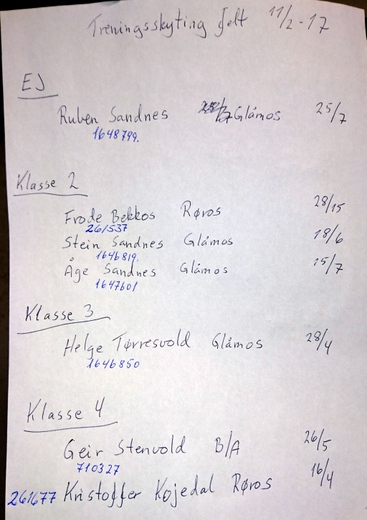 Treningsskyting felt 11/2-17
EJ
Ruben Sandnes Glåmos 25/7
1648799.
Klasse 2
Frode Bekkos Røros 28/15
261537
Stein Sandnes Glåmos 18/6
1646819.
Åge Sandnes Glåmos 15/7
1647601
Klasse 3
Helge Tørresvold Glåmos 28/4
1646850
Klasse 4
Geir Stenvold B/A 26/5
710327
261677 Kristoffer Kojedal Røros 16/4